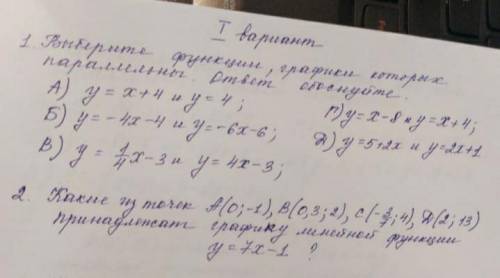 I вариант
1. Выберите функции, графики которых
параллельны. Ответ обоснуйте.
А) y = x+4 и y = 4;
Г) y = x-8 и y = x+4;
Б) y = -4x-4 и y = -6x-6;
Д) y = 5+2x и y = 2x+1
В) y = 1/4 x-3 и y = 4x-3;
2. Какие из точек A(0;-1), B(0,3;2), C(-3/7;4), D(2;13)
принадлежат графику линейной функции
y = 7x-1 ?